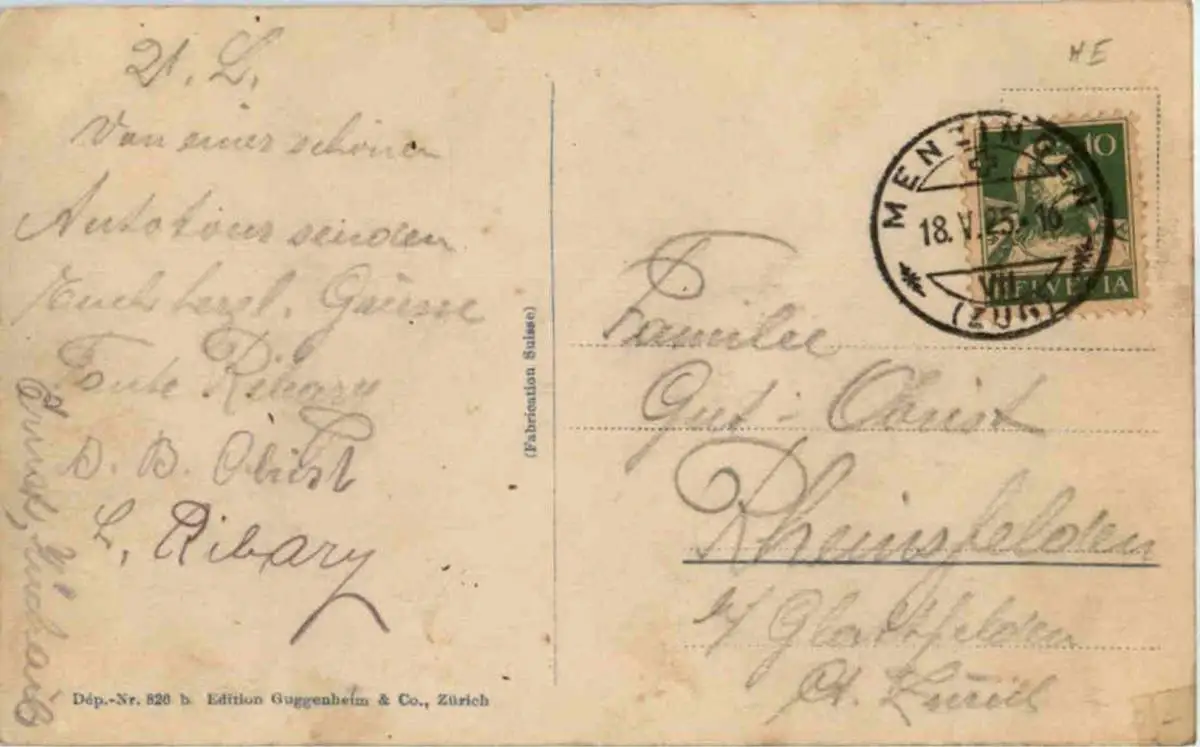 21. L.
Von einer schönen
Autotour senden
Euch herzl. Grüsse
Fam. Ribary
B. Obrist
L. Ribary
Dép.-Nr. 820 b Edition Guggenheim & Co., Zürich
(Fabrication Suisse)
HE
10
HELVETIA
MENZINGEN
18. V. 25.-16
VIII
(ZUG)
Familie
Gut-Obrist
Rheinsfelden
b/ Glattfelden
Ct. Zürich